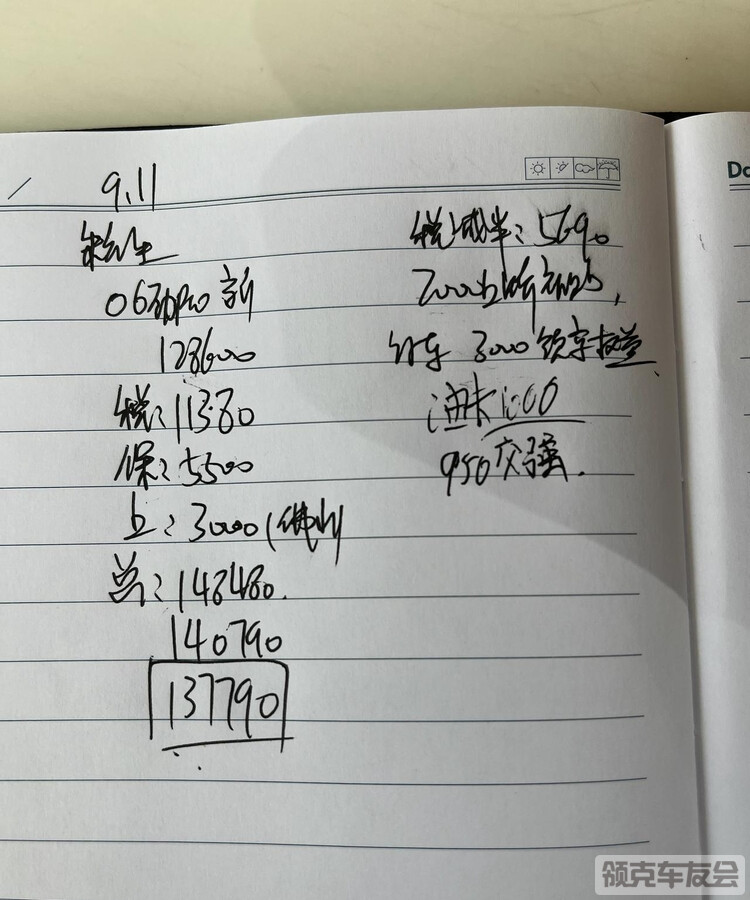 9.11
06 新
128600
税:11380
保:5500
上:3000(佛山)
总:148480.
140790
137790
税减半:5690
2000
订车 3000
油卡1000
950交强.
Da
领克车友会